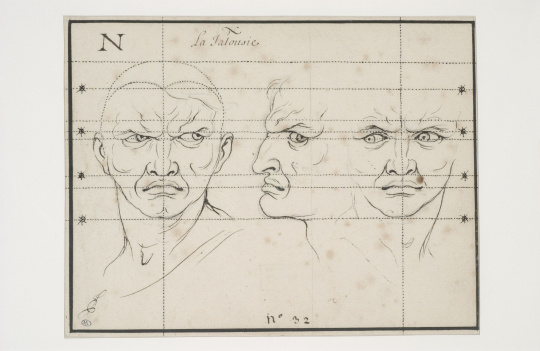 N
La Jalousie
N° 32